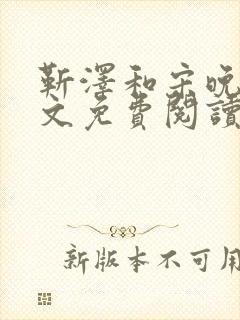 靳澤和宋晚
文免費閱讀
新版本不可用